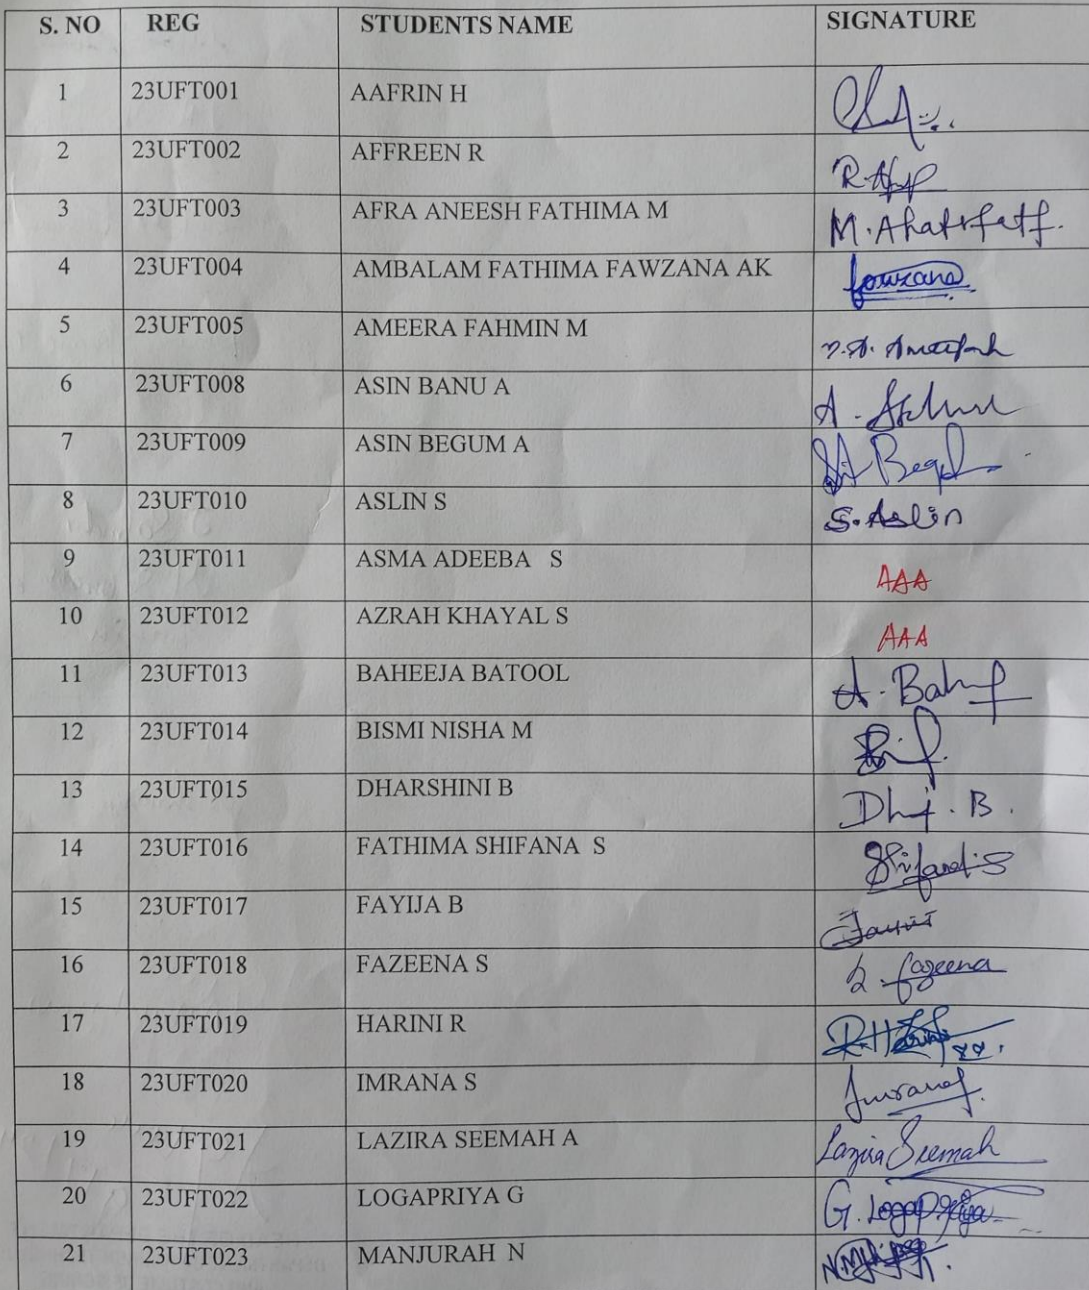 S. NO REG STUDENTS NAME SIGNATURE
1 23UFT001 AAFRIN H
2 23UFT002 AFFREEN R
3 23UFT003 AFRA ANEESH FATHIMA M
4 23UFT004 AMBALAM FATHIMA FAWZANA AK fowzana
5 23UFT005 AMEERA FAHMIN M
6 23UFT008 ASIN BANU A
7 23UFT009 ASIN BEGUM A
8 23UFT010 ASLIN S S.Aslin
9 23UFT011 ASMA ADEEBA S AAA
10 23UFT012 AZRAH KHAYAL S AAA
11 23UFT013 BAHEEJA BATOOL
12 23UFT014 BISMI NISHA M
13 23UFT015 DHARSHINI B
14 23UFT016 FATHIMA SHIFANA S
15 23UFT017 FAYIJA B
16 23UFT018 FAZEENA S S. fazeena
17 23UFT019 HARINI R
18 23UFT020 IMRANA S
19 23UFT021 LAZIRA SEEMAH A Lazira Seemah
20 23UFT022 LOGAPRIYA G G. Logapriya
21 23UFT023 MANJURAH N